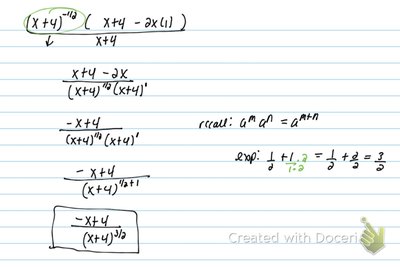 (x+4)^-1/2 ( x+4 - 2x(1) )
x+4
x+4 - 2x
(x+4)^1/2 (x+4)^1
-x+4
(x+4)^1/2 (x+4)^1
recall: a^m a^n = a^m+n
exp: 1/2 + 1·2/1·2 = 1/2 + 2/2 = 3/2
-x+4
(x+4)^1/2+1
-x+4
(x+4)^3/2
Created with Doceri